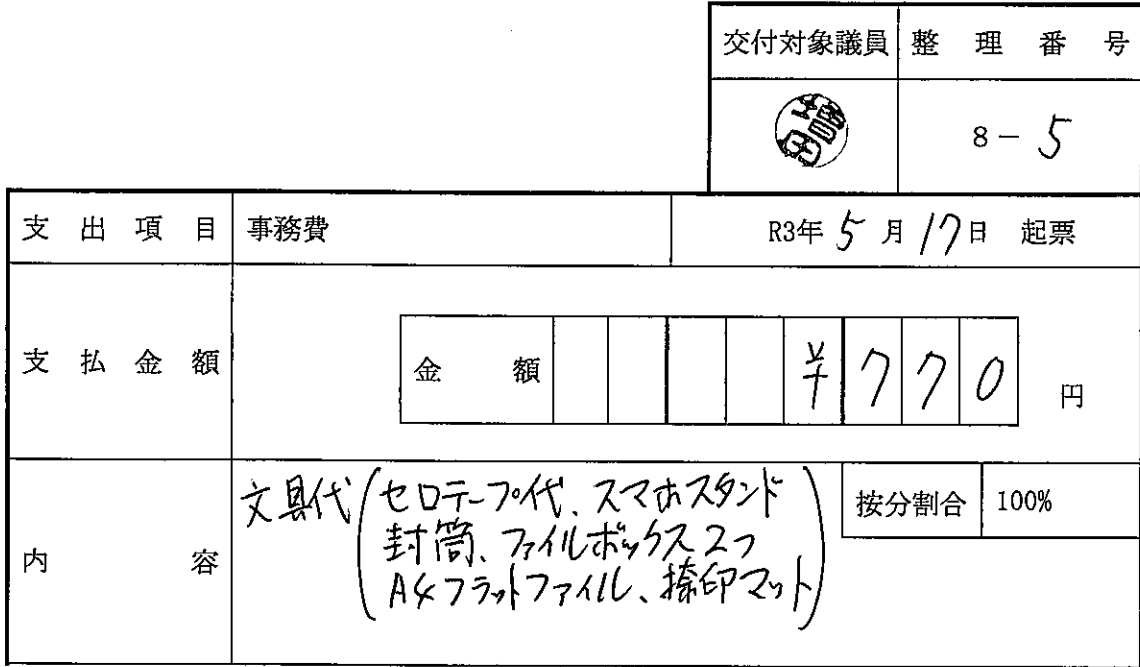 交付対象議員 整理番号
増田 8－5
支出項目 事務費 R3年5月17日 起票
支払金額 金額 ¥770 円
内容 文具代(セロテープ代、スマホスタンド 按分割合 100%
封筒、ファイルボックス2つ
A4フラットファイル、捺印マット)